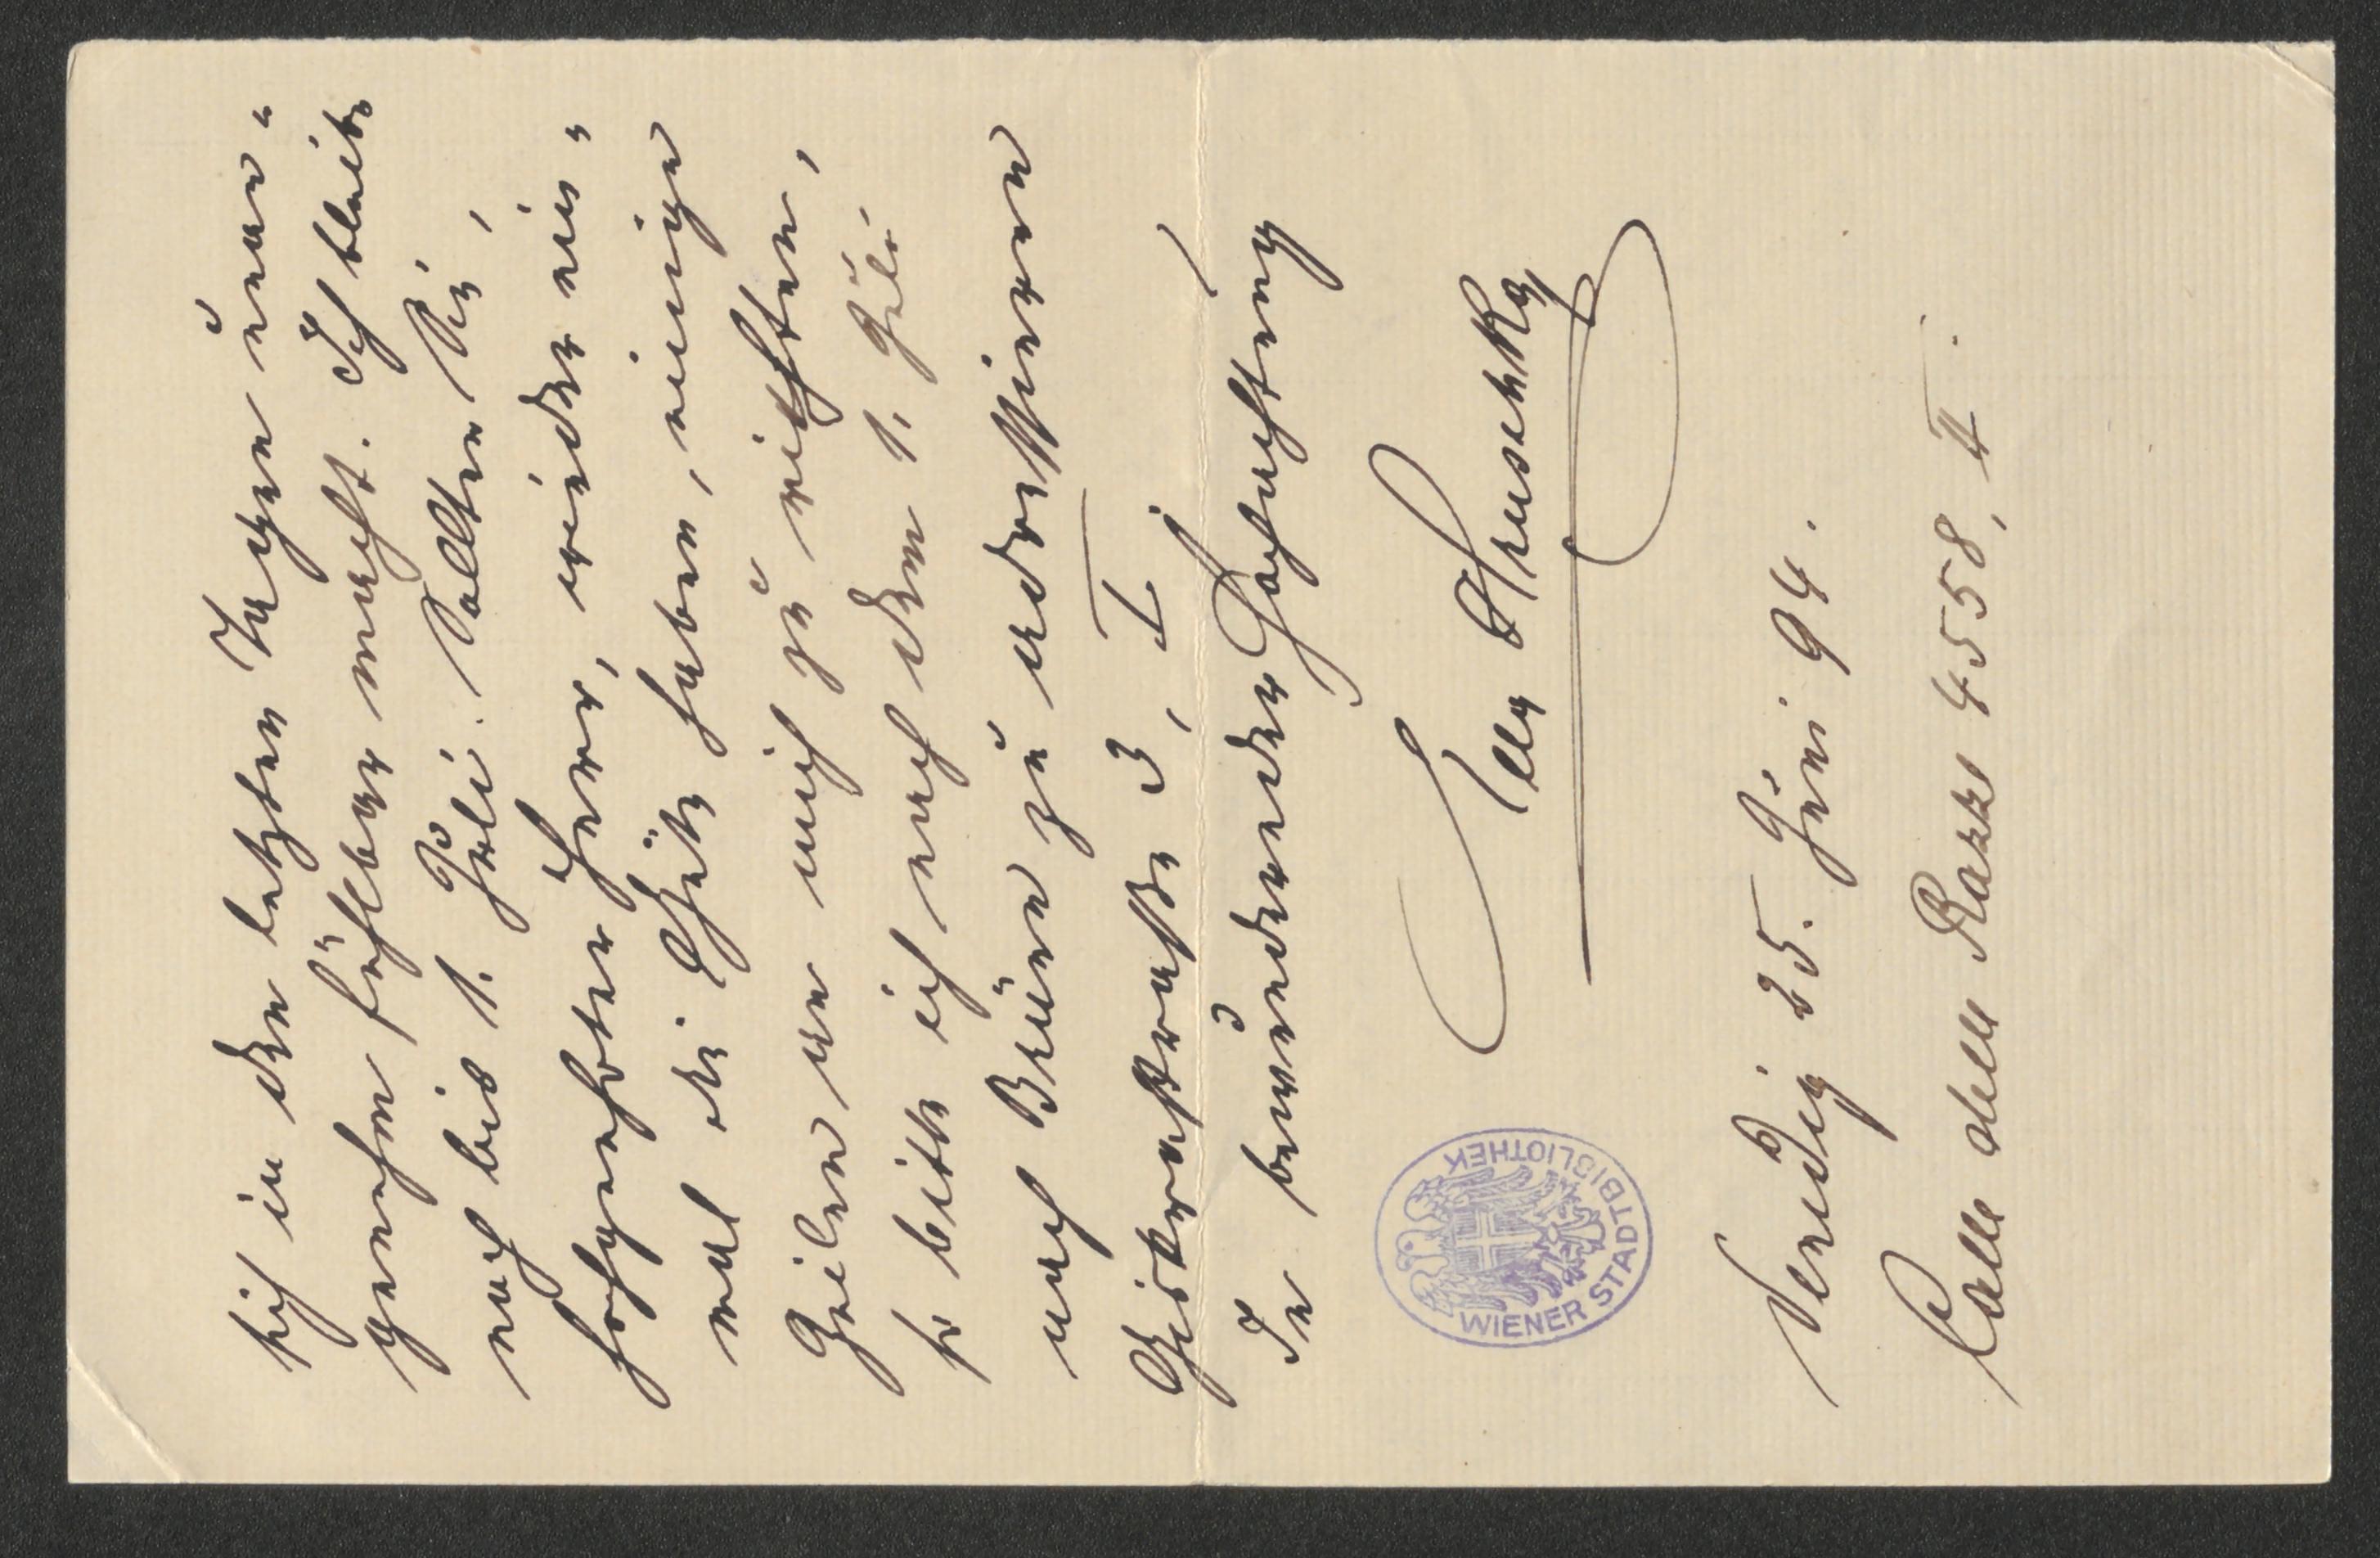 sich in den letzten Tagen unan-
genehm fühlbar macht. Ich bleibe
noch bis 1. Juli. Sollten Sie,
hochgeehrter Herr, wieder ein-
mal die Güte haben, einige
Zeilen an mich zu richten,
so bitte ich nach dem 1. Juli
nach Brünn zu adressieren
Giskrastraße 3, I.
In bewundernder Hochachtung
Ella Hruschka
Venedig 25. Juni 94.
Calle delle Rasse 4558, II.
WIENER STADTBIBLIOTHEK